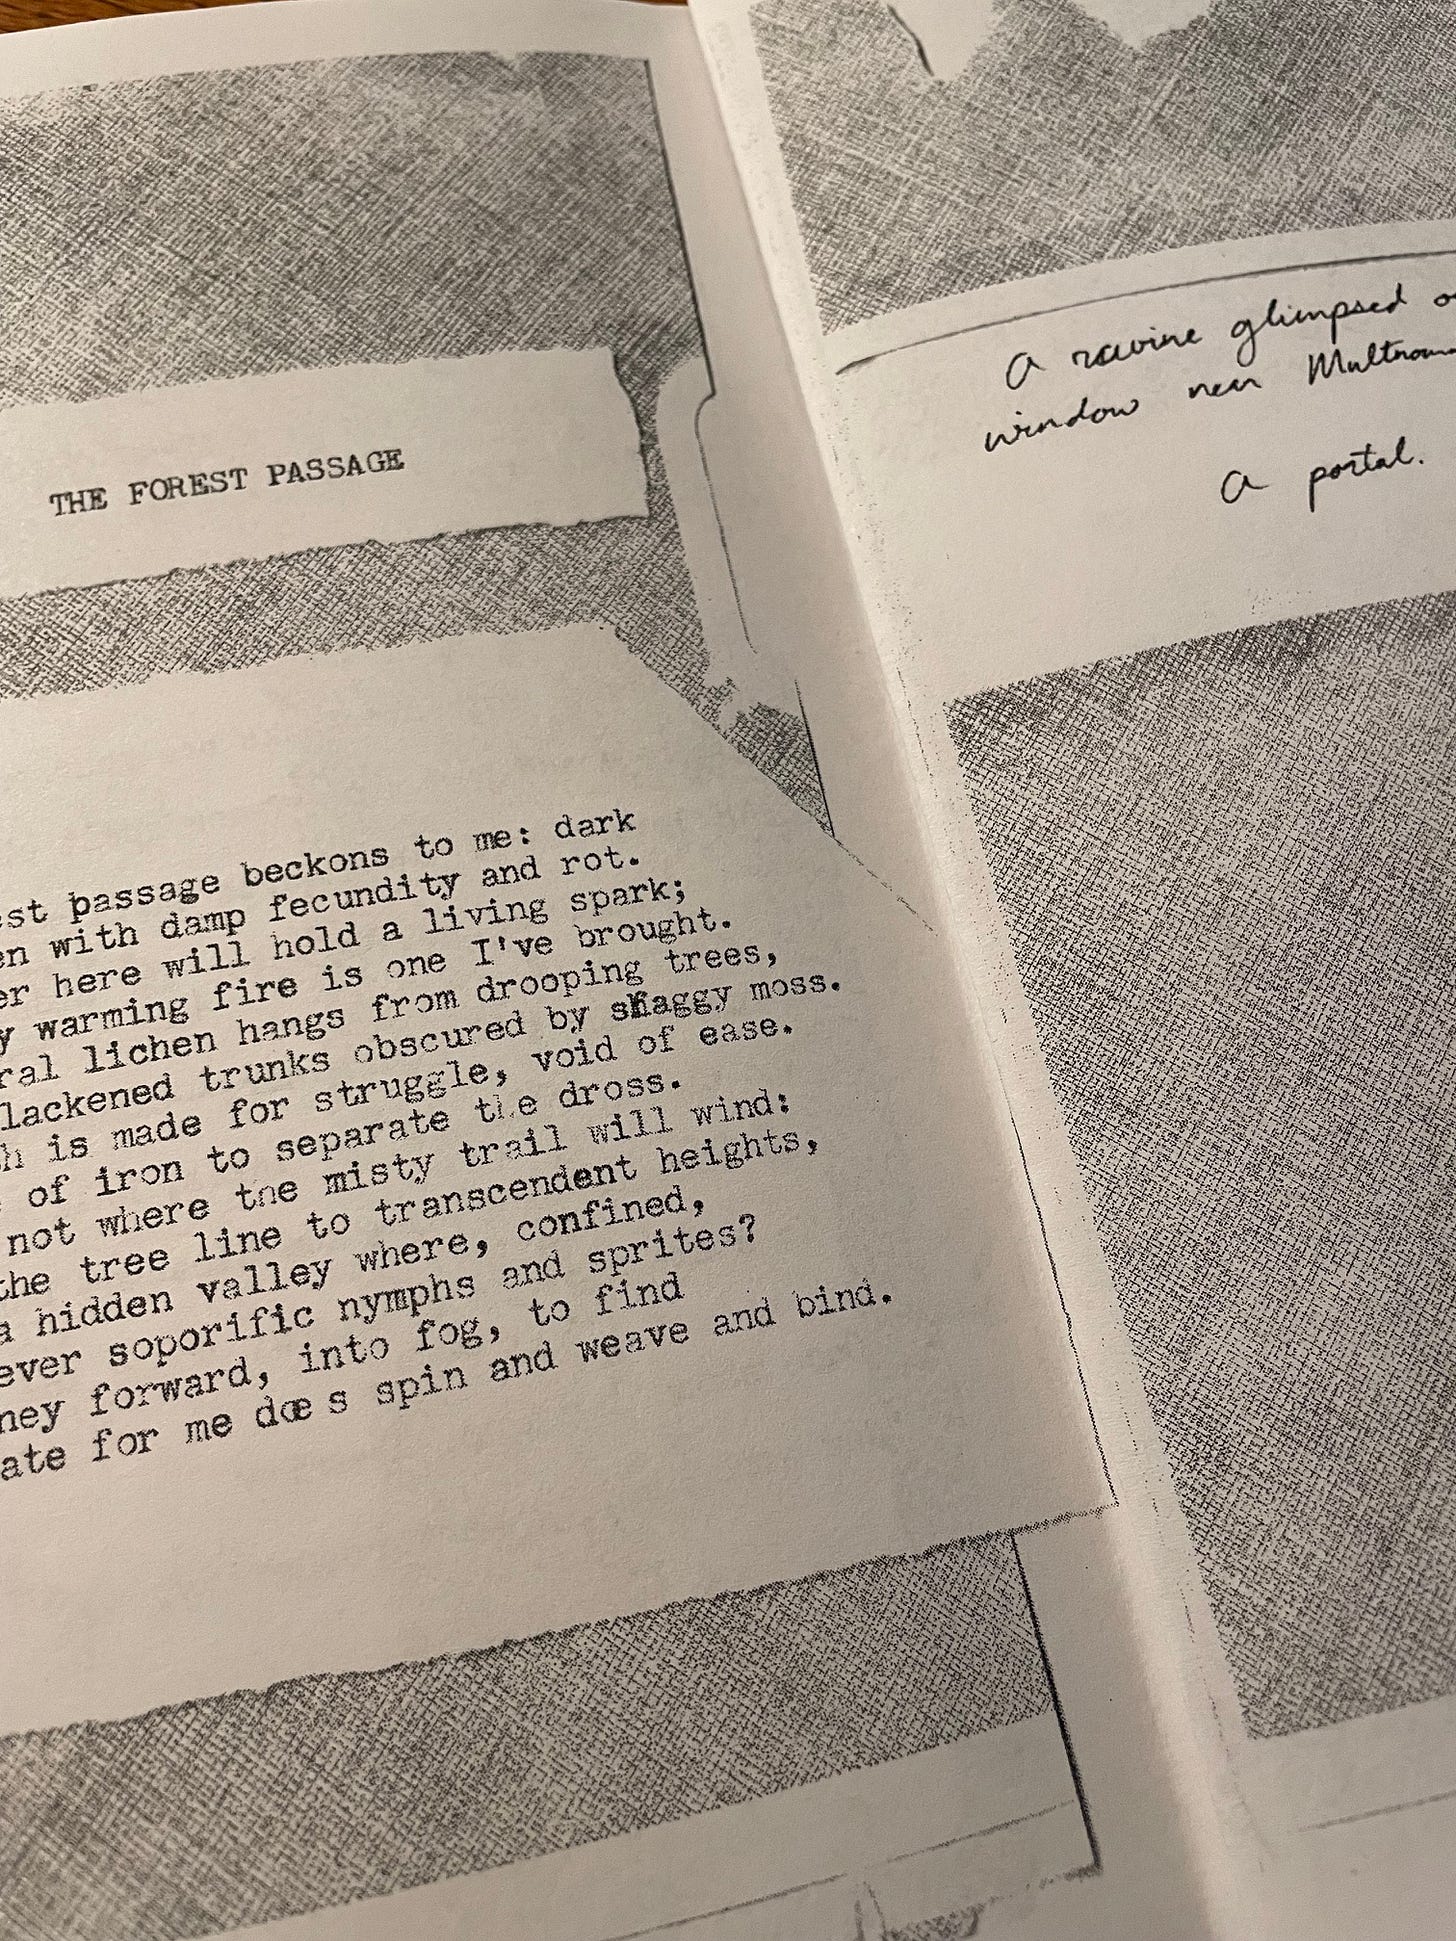 THE FOREST PASSAGE
est passage beckons to me: dark
en with damp fecundity and rot.
er here will hold a living spark;
y warming fire is one I've brought.
ral lichen hangs from drooping trees,
lackened trunks obscured by shaggy moss.
h is made for struggle, void of ease.
of iron to separate the dross.
not where the misty trail will wind:
the tree line to transcendent heights,
a hidden valley where, confined,
ever soporific nymphs and sprites?
ney forward, into fog, to find
ate for me does spin and weave and bind.
A ravine glimpsed
window near
A portal.